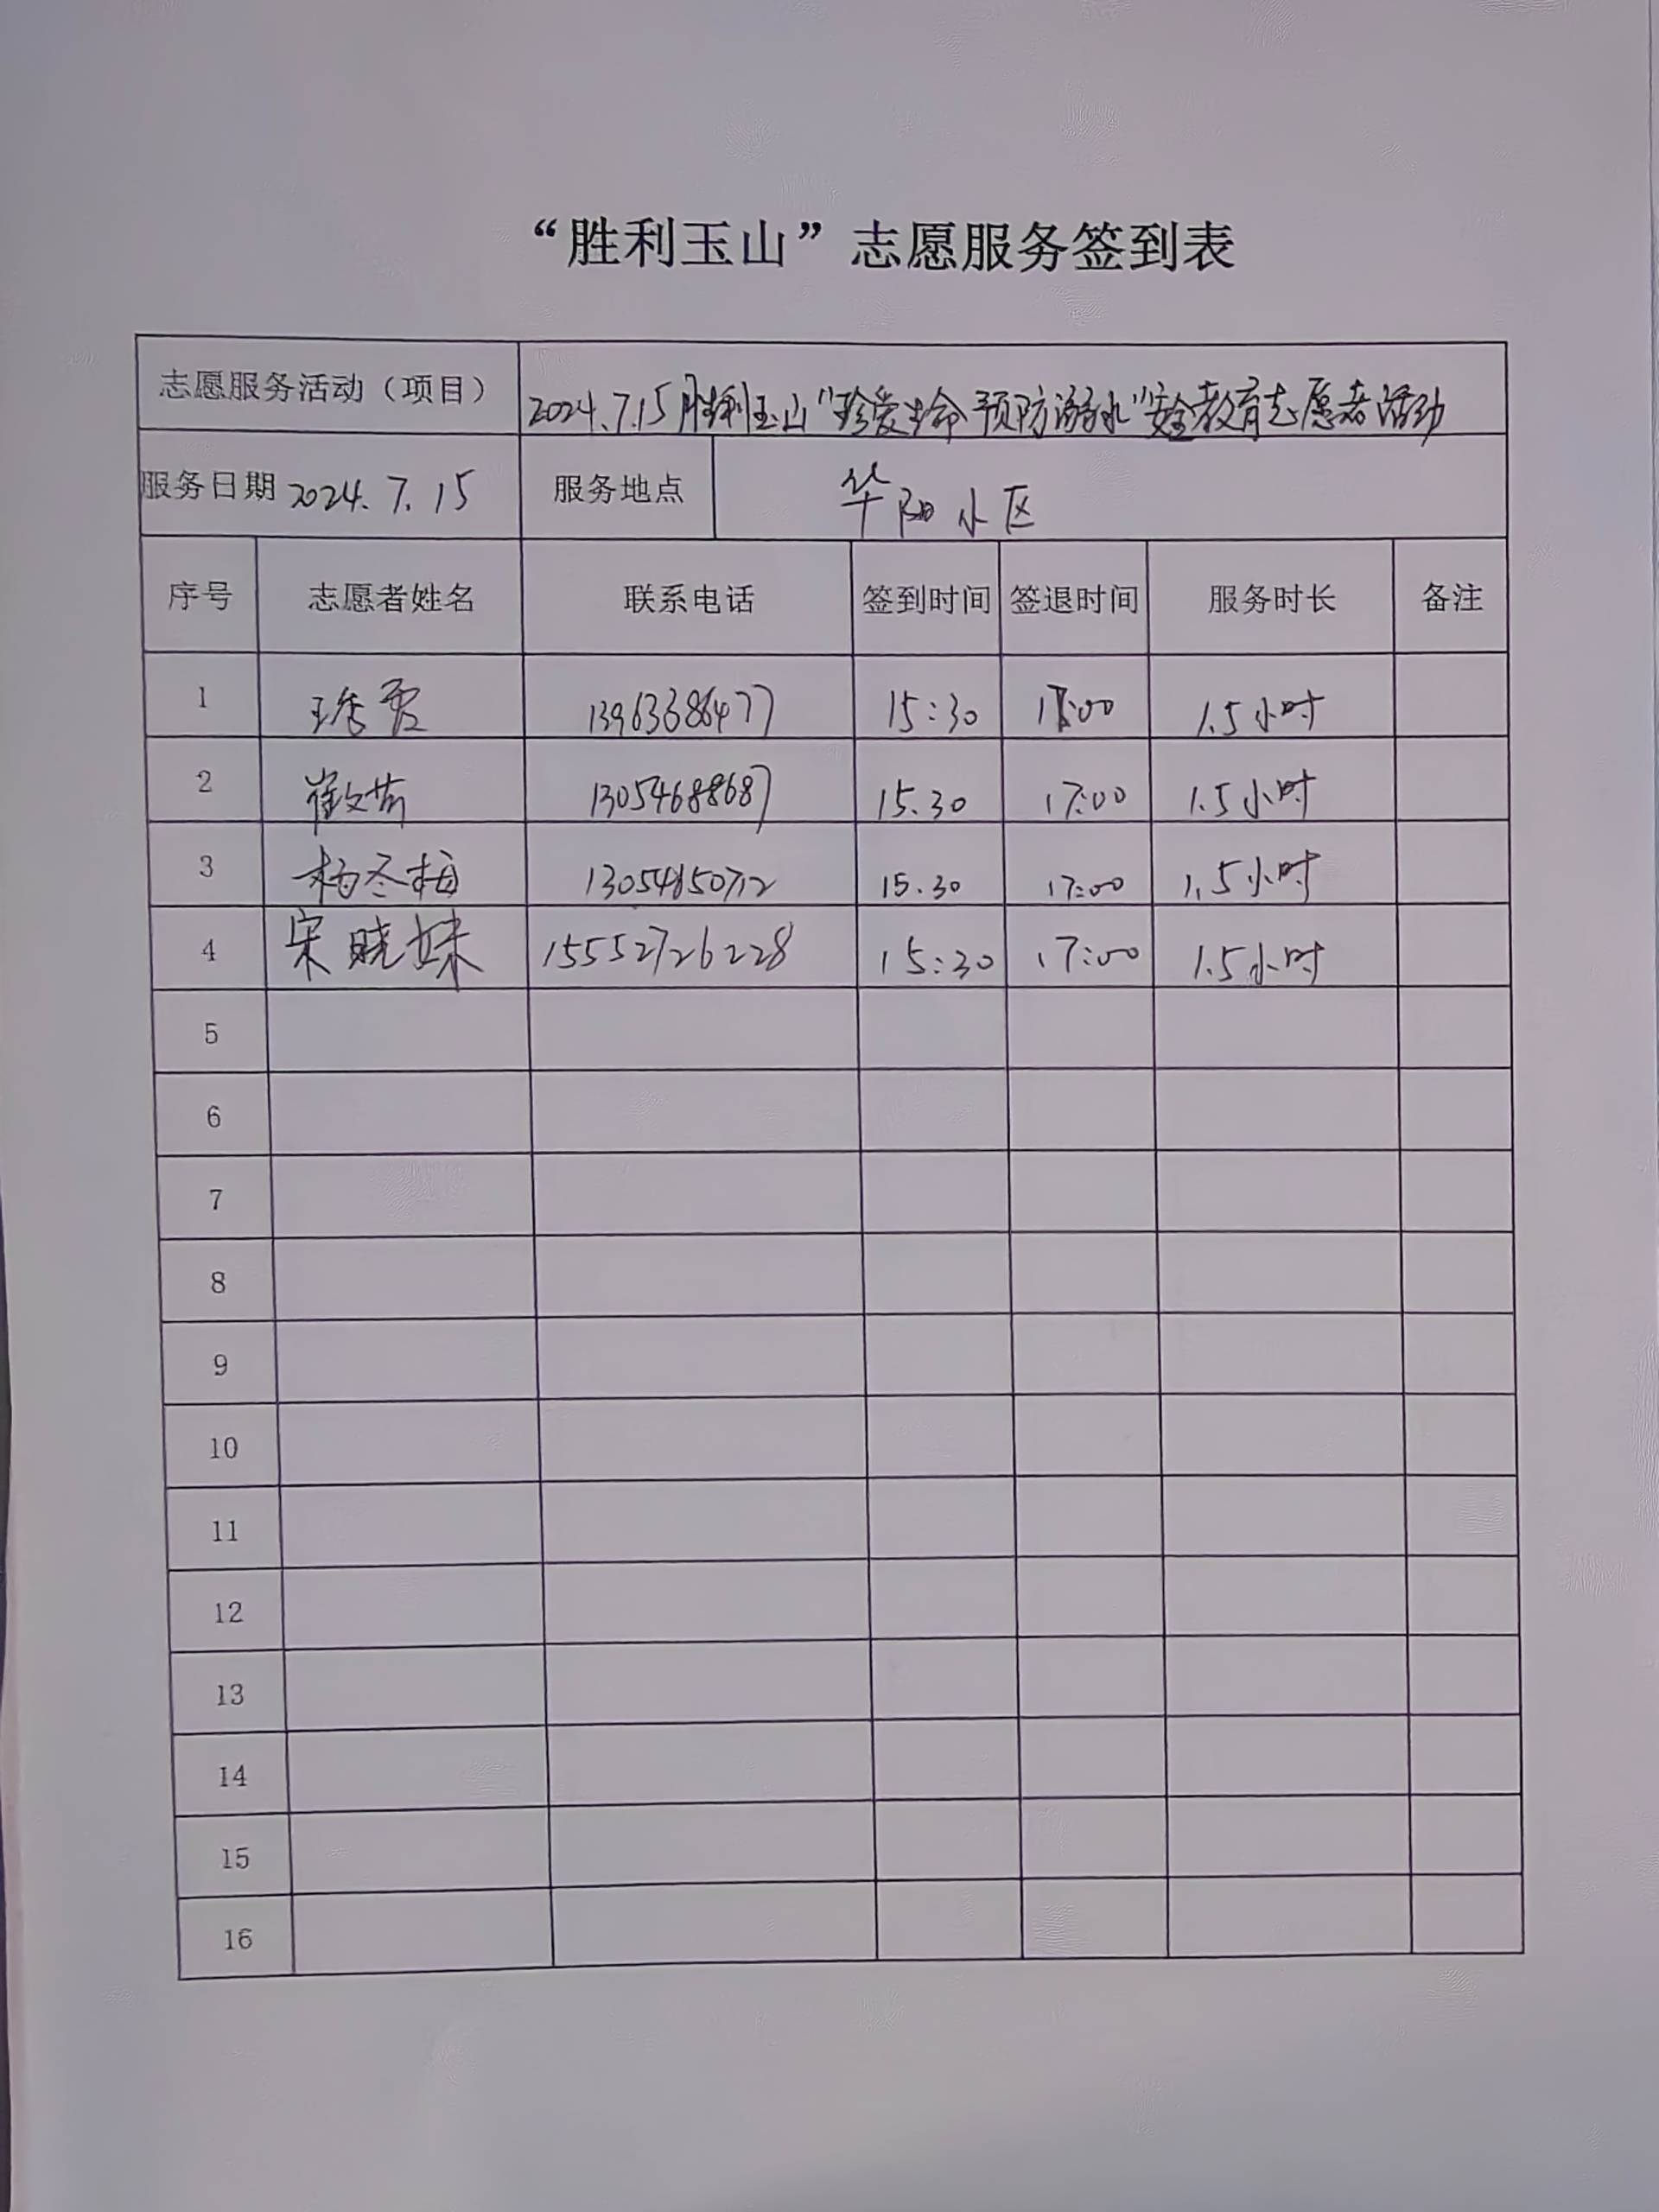 “胜利玉山”志愿服务签到表
志愿服务活动（项目） 2024.7.15胜利玉山“珍爱生命 预防溺水”安全教育志愿者活动
服务日期 2024.7.15 服务地点 华阳小区
序号 志愿者姓名 联系电话 签到时间 签退时间 服务时长 备注
1 王秀霞 13963386477 15:30 17:00 1.5小时
2 15.30 17:00 1.5小时
3 杨冬梅 15.30 17:00 1.5小时
4 宋晓妹 15552726228 15:30 17:00 1.5小时
5
6
7
8
9
10
11
12
13
14
15
16